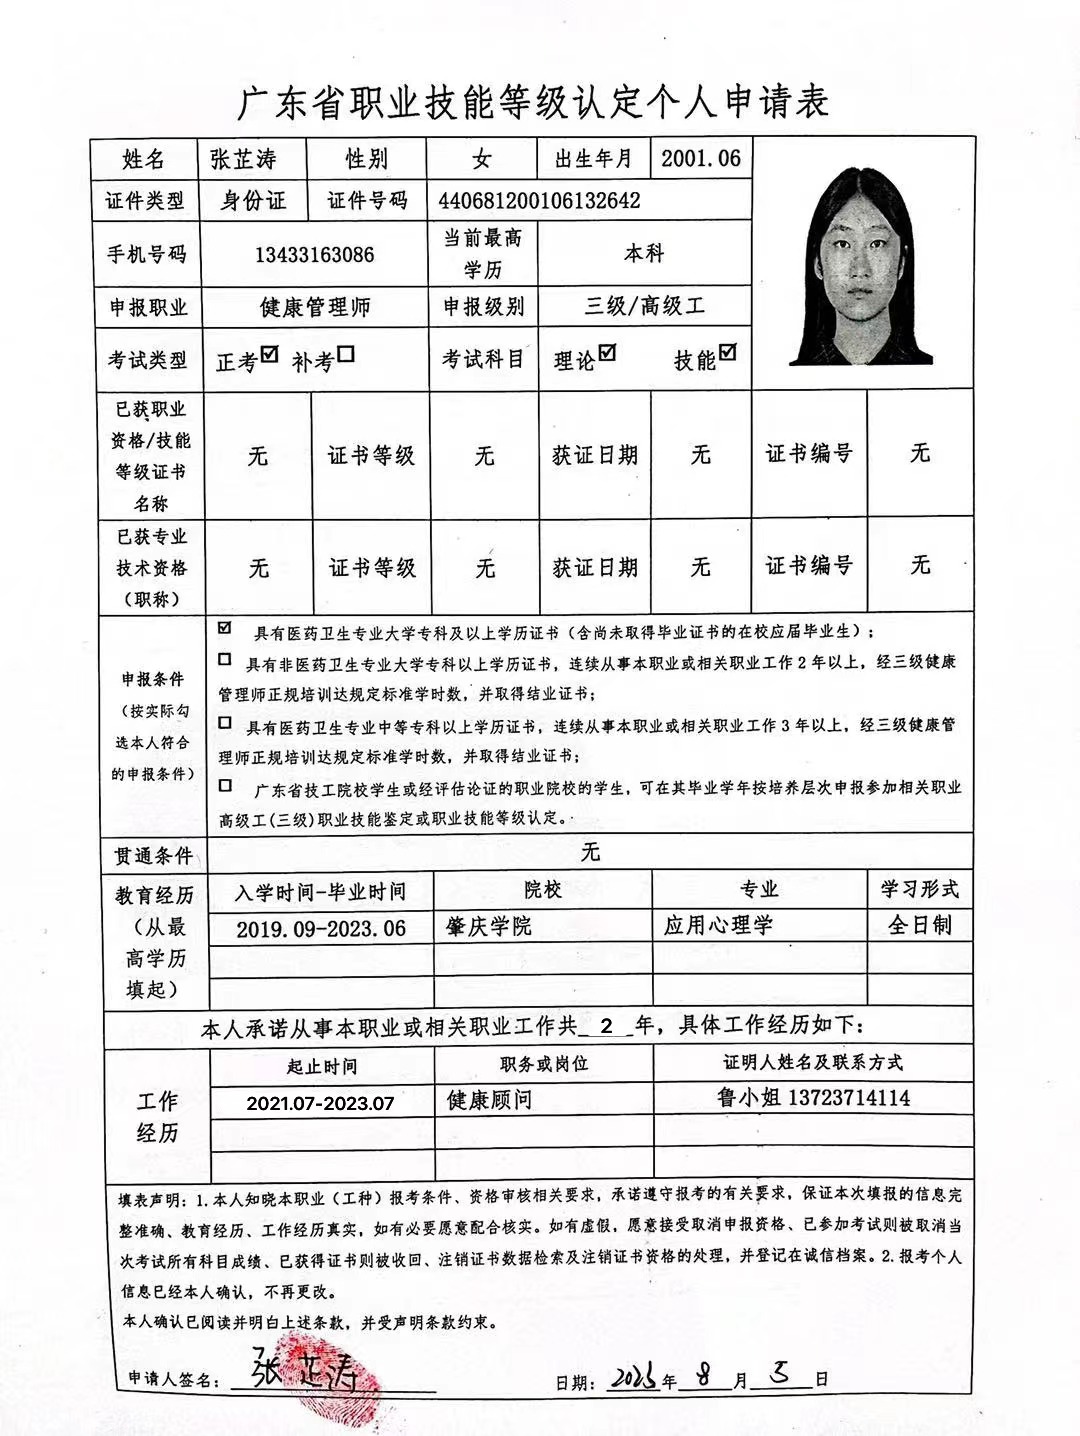 广东省职业技能等级认定个人申请表
姓名 张芷涛 性别 女 出生年月 2001.06
证件类型 身份证 证件号码 440681200106132642
手机号码 13433163086 当前最高学历 本科
申报职业 健康管理师 申报级别 三级/高级工
考试类型 正考☑ 补考☐ 考试科目 理论☑ 技能☑
已获职业资格/技能等级证书名称 无 证书等级 无 获证日期 无 证书编号 无
已获专业技术资格（职称） 无 证书等级 无 获证日期 无 证书编号 无
申报条件（按实际勾选本人符合的申报条件）
☑ 具有医药卫生专业大学专科及以上学历证书（含尚未取得毕业证书的在校应届毕业生）；
☐ 具有非医药卫生专业大学专科以上学历证书，连续从事本职业或相关职业工作2年以上，经三级健康
管理师正规培训达规定标准学时数，并取得结业证书；
☐ 具有医药卫生专业中等专科以上学历证书，连续从事本职业或相关职业工作3年以上，经三级健康管
理师正规培训达规定标准学时数，并取得结业证书；
☐ 广东省技工院校学生或经评估论证的职业院校的学生，可在其毕业学年按培养层次申报参加相关职业
高级工(三级)职业技能鉴定或职业技能等级认定。
贯通条件 无
教育经历（从最高学历填起） 入学时间-毕业时间 院校 专业 学习形式
2019.09-2023.06 肇庆学院 应用心理学 全日制
本人承诺从事本职业或相关职业工作共 2 年，具体工作经历如下：
工作经历 起止时间 职务或岗位 证明人姓名及联系方式
2021.07-2023.07 健康顾问 鲁小姐 13723714114
填表声明：1.本人知晓本职业（工种）报考条件、资格审核相关要求，承诺遵守报考的有关要求，保证本次填报的信息完
整准确、教育经历、工作经历真实，如有必要愿意配合核实。如有虚假，愿意接受取消申报资格、已参加考试则被取消当
次考试所有科目成绩、已获得证书则被收回、注销证书数据检索及注销证书资格的处理，并登记在诚信档案。2.报考个人
信息已经本人确认，不再更改。
本人确认已阅读并明白上述条款，并受声明条款约束。
申请人签名：张芷涛 日期：2025年8月5日